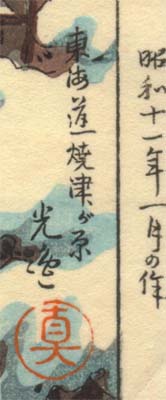 昭和十一年一月の作
東海道焼津が原
光逸
真